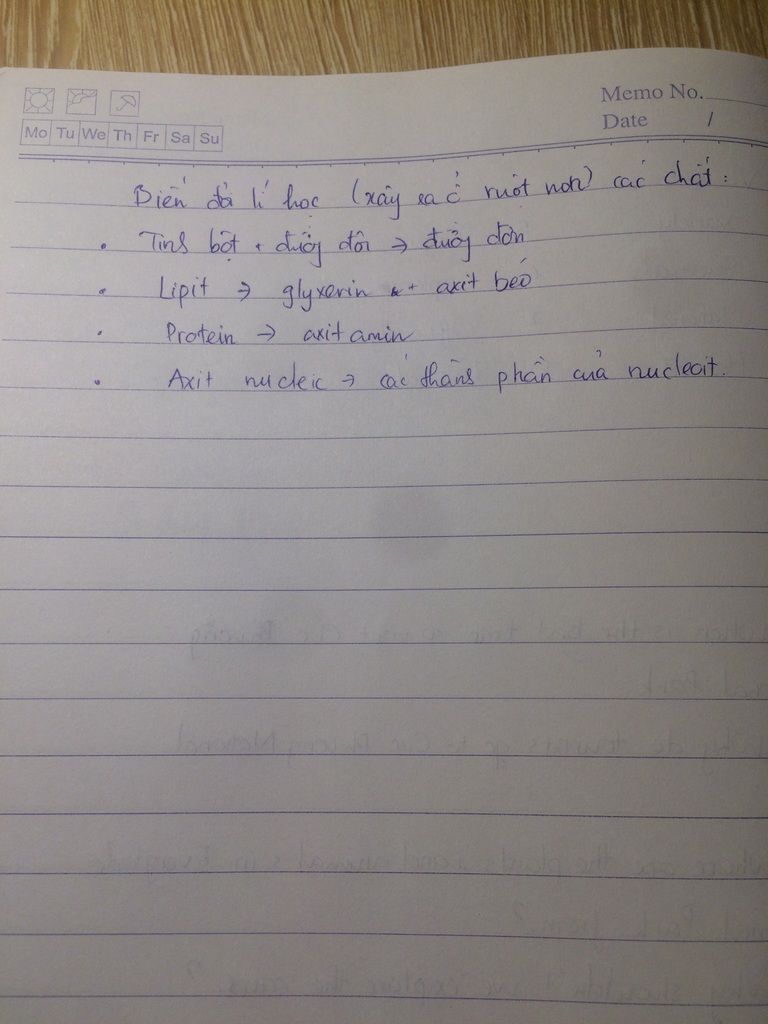 Memo No.
Date /
Mo Tu We Th Fr Sa Su
Biến đổi lí học (xảy ra ở ruột non) các chất :
• Tinh bột + đường đôi → đường đơn
• Lipit → glyxerin + axit béo
• Protein → axit amin
• Axit nucleic → các thành phần của nucleotit.